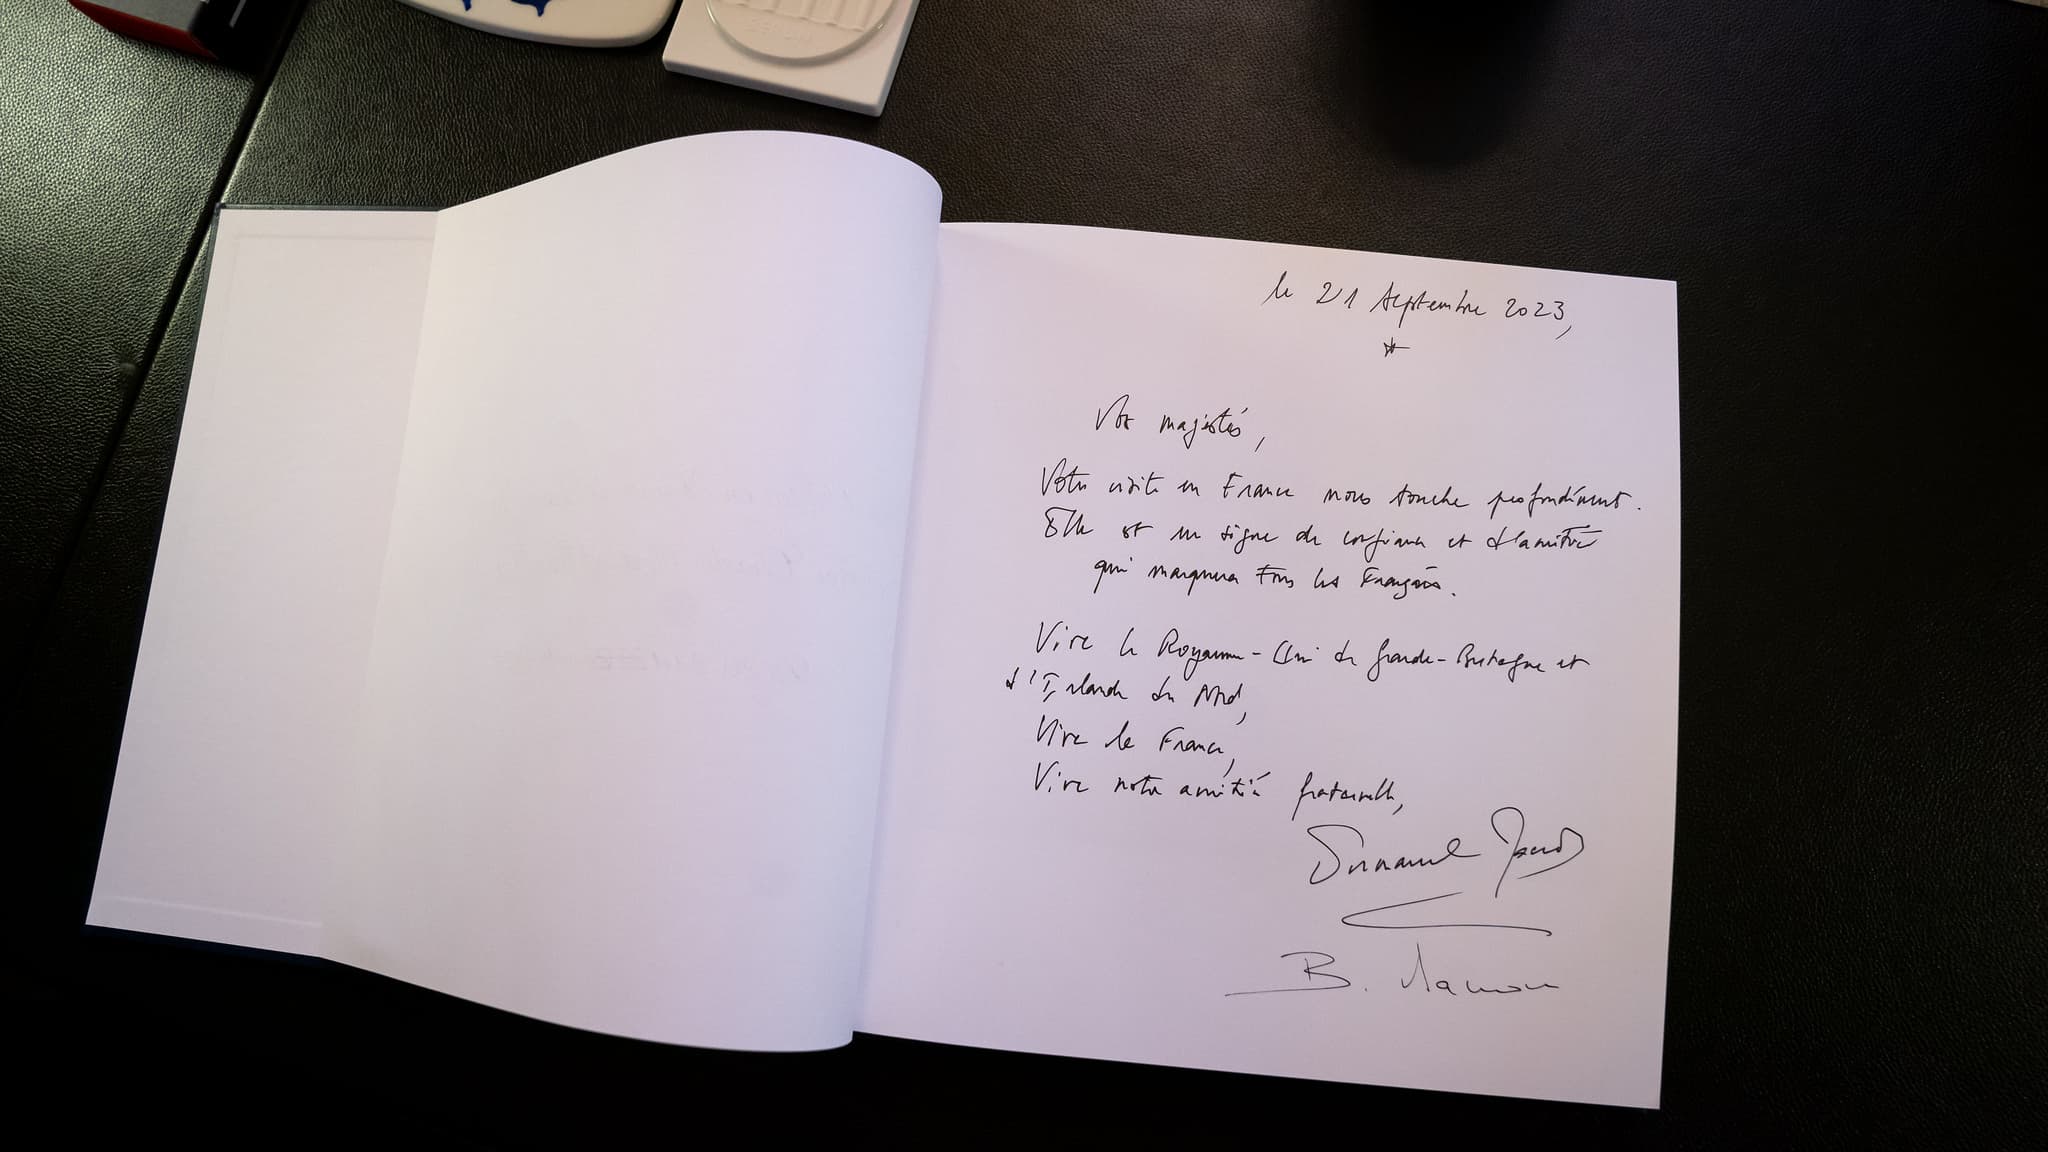 le 21 septembre 2023,
Vos majestés,
Votre visite en France nous touche profondément.
Elle est un signe de confiance et d'amitié
qui marquera tous les Français.
Vive le Royaume-Uni de Grande-Bretagne et
d'Irlande du Nord,
Vive la France,
Vive notre amitié fraternelle,
Emmanuel Macron
B. Macron